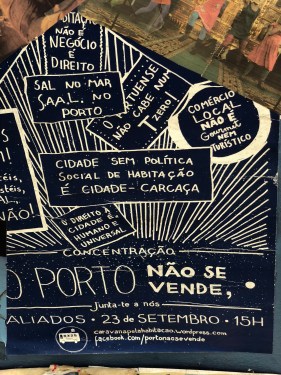 HABITAÇÃO
NÃO É
NEGÓCIO
É
DIREITO
SAL NO MAR
S.A.A.L. NO
PORTO
O PORTUENSE
NÃO CABE NUM
T
ZERO!
COMÉRCIO
LOCAL
NÃO É
Gourmet
NEM
TURÍSTICO
CIDADE SEM POLÍTICA
SOCIAL DE HABITAÇÃO
É CIDADE-CARCAÇA
O DIREITO À
CIDADE É
HUMANO E
UNIVERSAL
CONCENTRAÇÃO
O PORTO NÃO SE
VENDE,
Junta-te a nós
ALIADOS • 23 de SETEMBRO • 15H
caravanapelahabitacao.wordpress.com
facebook.com/portonaosevende